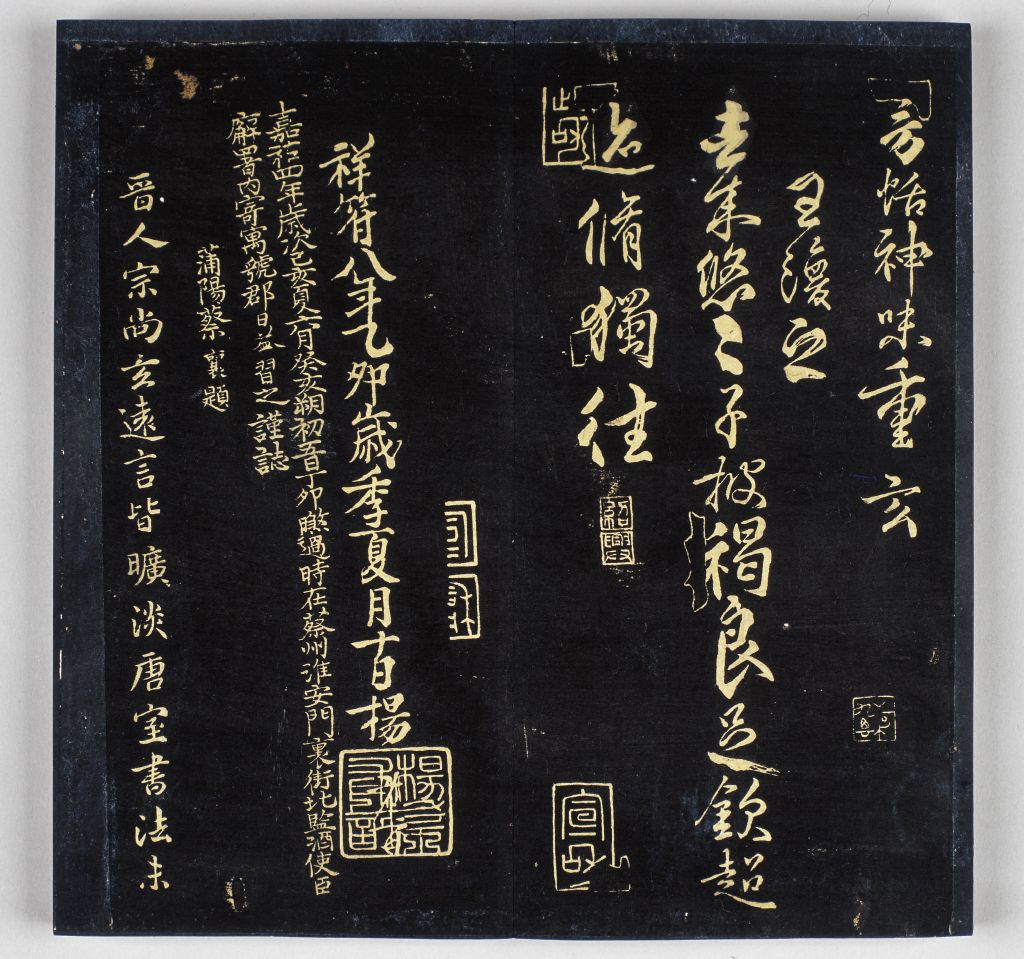 恬神味重玄
王渙之
去來悠悠子披褐良足欽超
迹脩獨往
紹興
祥符八年乙卯歲季夏月十日楊
嘉祐四年歲次己亥夏六月癸亥朔初五日丁卯過時在蔡州淮安門裏街北監酒使臣
廨署內寄寓號郡日益習之謹誌
蒲陽蔡襄題
晉人宗尚玄遠言皆曠淡唐室書法未